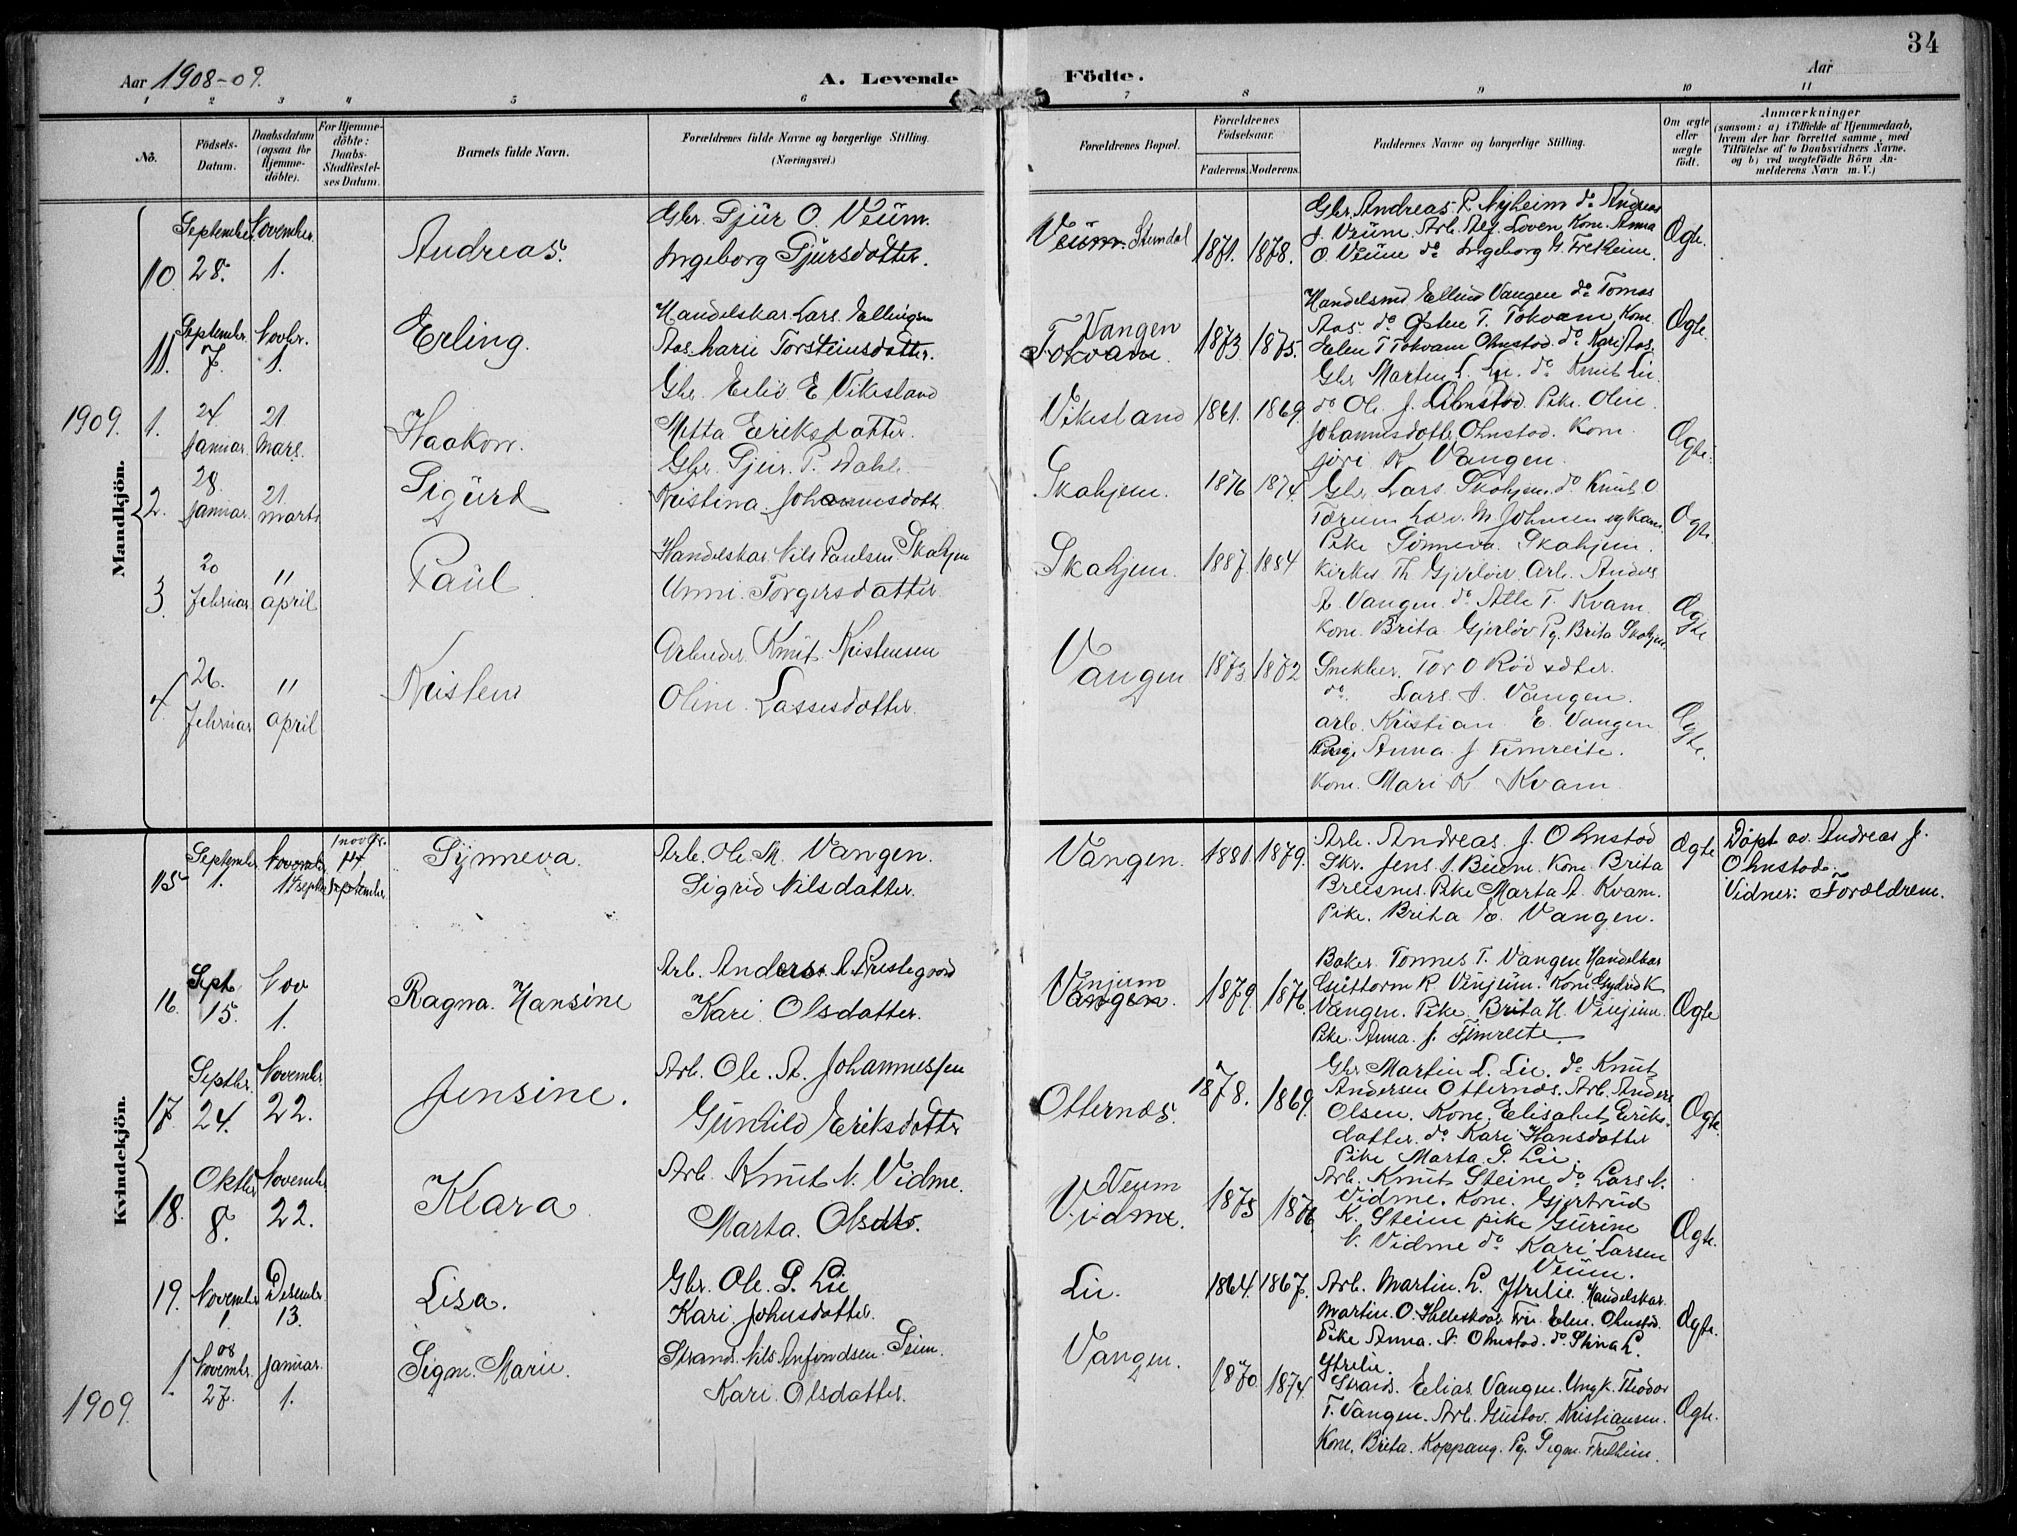 34
Aar 1908-09. A. Levende Födte. Aar
1 2 3 4 5 6 7 8 9 10 11
No. Födsels-Datum. Daabsdatum (ogsaa for Hjemme-döbte). For Hjemme-döbte: Daabs-Stadfæstel-ses Datum. Barnets fulde Navn. Forældrenes fulde Navne og borgerlige Stilling. (Næringsvei.) Forældrenes Bopæl. Forældrenes Födselsaar. Faderens. Moderens. Faddernes Navne og borgerlige Stilling. Om ægte eller uægte födt. Anmærkninger (saasom: a) i Tilfælde af Hjemmedaab, hvem der har forrettet samme, med Tilföielse af to Daabsvidners Navne. og b) ved uægtefödte Börn An-melderens Navn m. V.)
Mandkjön.
10. September 28. November. 1.
Andreas.
Gbr. Gjür O. Veüm.
Ingeborg Gjürsdatter.
Veüm. Stundal
1871. 1878.
Gbr. Andreas L. Nyheim do Andreas
J. Veüm. Arb. Alf. Loven Kone. Anna
O. Veüm do Ingeborg G. Fretheim.
Ægte.
11. September 7. Novbr. 1.
Erling.
Handelskar. Lars. Ellingsen
Aas. Marie Torsteinsdatter.
Vangen
Tokvam.
1873 1875.
Handelsmd Ellend Vangen do Tomas
Aas. do Østen T. Tokvam Kone.
Elen T Tokvam Ohnstad. do Kari Aas.
Ægte.
1909. 1. 24. Januar 21 Mars.
Haakon.
Gbr. Eilio E Vikesland
Metta Eriksdatter.
Vikesland
1861. 1869.
Gbr Marten L. Lie. do Knut Lie.
do Ole J. Ohnstad. Pike. Oline
Johannesdotter Ohnstad. Kone
K Vangen.
Ægte.
2. 28. Januar. 21 marts
Sigürd
Gbr. Gjeir. P. Dahl.
Kristina. Johannesdott.
Skahjem.
1876 1874.
Gbr. Lars Skahjem. do Knut O
M. Johnsen og Kone.
Pike Sönneva. Skahjem.
Ægte
3. 20 Februar. 11 april
Paul
Handelskar. Nils Paulsen Skahjem
Unni. Torgersdatter.
Skahjem.
1887. 1884
Kirkes. Th Gjerlöv. Arb. Anders
A. Vangen. do Atle T. Kvam.
Kone. Brita Gjerlöv Pg. Brita Skahjem.
Ægte
4. 26. Februar 11 april
Kristen
Arbeider. Knut Kristensen
Oline. Lassesdatter.
Vangen
1873. 1872
Snekker. Tor O
do. Lars J. Vangen.
arb. Kristian. E. Vangen
Anna. J Timreite.
Kone. Mari K. Kvam.
Ægte.
Kvindekjön.
15 September 1. November 1 September
Synneva.
Arb. Ole. M. Vangen.
Sigrid Nilsdatter.
Vangen.
1881. 1879.
Arb. Andreas. J. Ohnstad
Skr. Jens J. Kone Brita
Breisnes. Pike Marta A. Kvam.
Pike. Brita E. Vangen.
Ægte
Döpt av Andreas J.
Ohnstad.
Vidner: Forældrene.
16. Sept 15. Nov 1.
Ragna. Hansine
Arb. Anders. A Prestegaard
Kari Olsdatter.
Vinjum
Vangen.
1879. 1876.
Baker Tonnes T. Vangen Handelkar
Guttorm R. Vinjum. Kone Gydrid K
Vangen. Pike. Brita H. Vinjum.
Pike. Anna. J. Timreite.
Ægte
17 Septbr. 24. November. 22.
Jensine.
Arb. Ole. A. Johannessen
Gunhild Eriksdatter
Otternæs.
1878. 1869.
Gbr. Martin L. Lie. do Knut
Andersen Otternæs. Arb. Anders
Olsen. Kone. Elisabet Eriks-
datter. do Kari Hansdatter
Pike Marta S. Lie.
Ægte.
18. Oktbr 8. November. 22.
Klara
Arb. Knut N. Vidme.
Marta. Olsdtr.
Veum
Vidme.
1875 1876
Arb. Knut Steine do Lars N.
Vidme. Kone. Gjertrud
K. Steine pike Gurine
N. Vidme do Kari Larsen
Veum.
Ægte.
19. November 1 Desember 13.
Lisa.
Gbr. Ole. S. Lie
Kari Johnsdatter.
Lie.
1864. 1867.
Arb. Martin. L. Ytrelie. Handelskar.
Martin. O. Fru. Elen. Ohnstad.
Pike Anna. N. Ohnstad. do. Stina L.
Ytrelie.
Ægte.
1909. 1. 08 November 27. Januar. 1.
Signe. Marie
Strands. Nils Anfindsen. Seim.
Kari. Olsdatter.
Vangen.
1870 1874.
Strands. Elias. Vangen. Ungk. Theodor
T. Vangen. Arb. Gustav. Kristiansen.
Kone. Brita. Koppang. Pg. Signe. Fretheim.
Ægte.